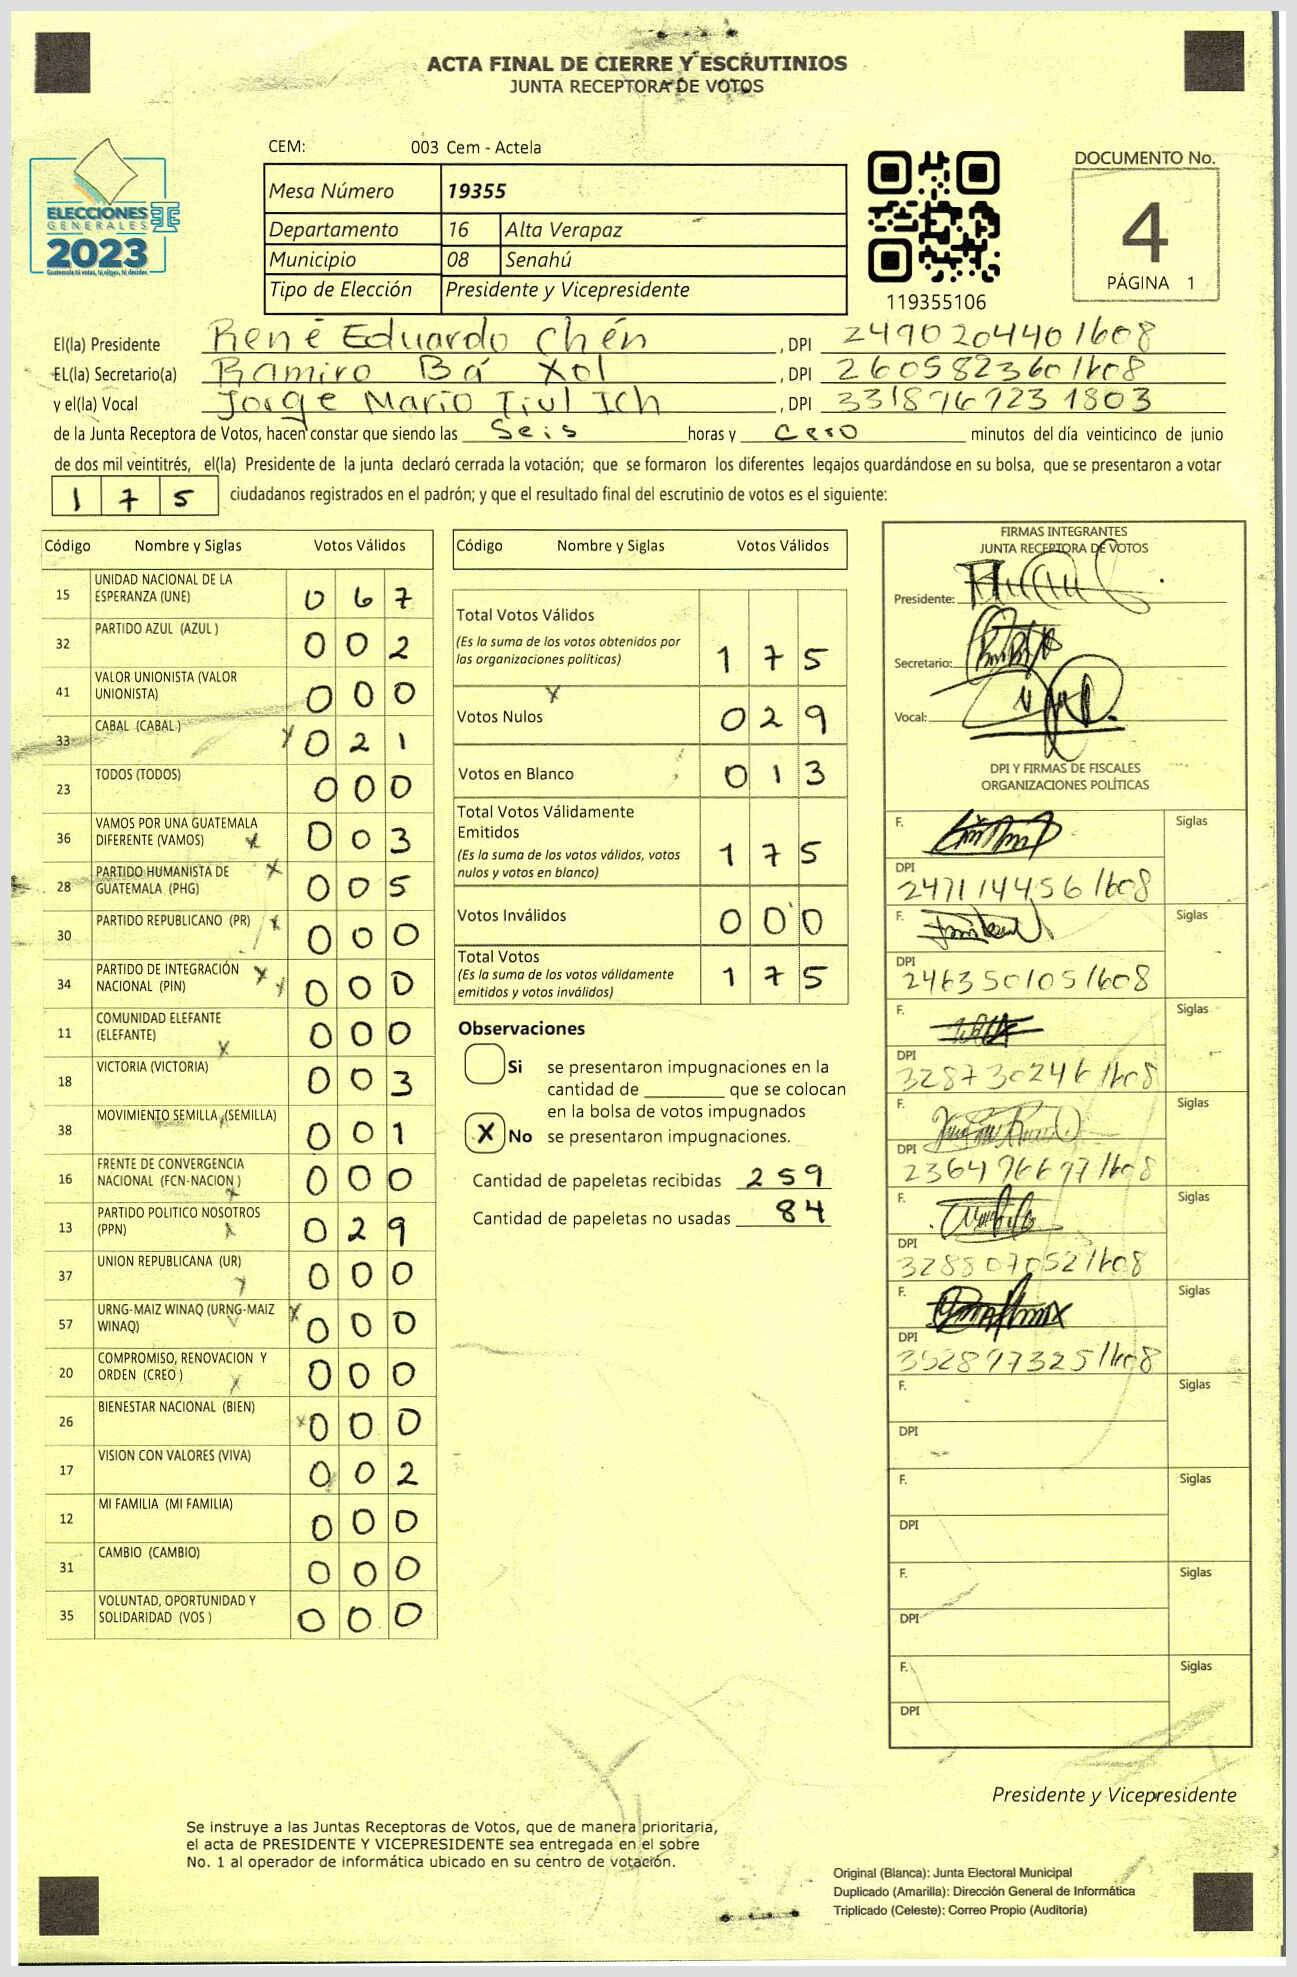 ACTA FINAL DE CIERRE Y ESCRUTINIOS
JUNTA RECEPTORA DE VOTOS
CEM: 003 Cem - Actela
ELECCIONES
GENERALES
2023
Guatemala tú votas, tú eliges, tú decides
Mesa Número 19355
Departamento 16 Alta Verapaz
Municipio 08 Senahú
Tipo de Elección Presidente y Vicepresidente
119355106
DOCUMENTO No.
4
PÁGINA 1
El(la) Presidente René Eduardo Chén , DPI 2490204401608
EL(la) Secretario(a) Ramiro Bá Xol , DPI 2605823601608
y el(la) Vocal Jorge Mario Tiul Ich , DPI 3318767231803
de la Junta Receptora de Votos, hacen constar que siendo las Seis horas y Cero minutos del día veinticinco de junio
de dos mil veintitrés, el(la) Presidente de la junta declaró cerrada la votación; que se formaron los diferentes legajos guardándose en su bolsa, que se presentaron a votar
1 7 5 ciudadanos registrados en el padrón; y que el resultado final del escrutinio de votos es el siguiente:
Código Nombre y Siglas Votos Válidos
15 UNIDAD NACIONAL DE LA ESPERANZA (UNE) 0 6 7
32 PARTIDO AZUL (AZUL ) 0 0 2
41 VALOR UNIONISTA (VALOR UNIONISTA) 0 0 0
33 CABAL (CABAL ) 0 2 1
23 TODOS (TODOS) 0 0 0
36 VAMOS POR UNA GUATEMALA DIFERENTE (VAMOS) 0 0 3
28 PARTIDO HUMANISTA DE GUATEMALA (PHG) 0 0 5
30 PARTIDO REPUBLICANO (PR) 0 0 0
34 PARTIDO DE INTEGRACIÓN NACIONAL (PIN) 0 0 0
11 COMUNIDAD ELEFANTE (ELEFANTE) 0 0 0
18 VICTORIA (VICTORIA) 0 0 3
38 MOVIMIENTO SEMILLA (SEMILLA) 0 0 1
16 FRENTE DE CONVERGENCIA NACIONAL (FCN-NACION ) 0 0 0
13 PARTIDO POLITICO NOSOTROS (PPN) 0 2 9
37 UNION REPUBLICANA (UR) 0 0 0
57 URNG-MAIZ WINAQ (URNG-MAIZ WINAQ) 0 0 0
20 COMPROMISO, RENOVACION Y ORDEN (CREO ) 0 0 0
26 BIENESTAR NACIONAL (BIEN) 0 0 0
17 VISION CON VALORES (VIVA) 0 0 2
12 MI FAMILIA (MI FAMILIA) 0 0 0
31 CAMBIO (CAMBIO) 0 0 0
35 VOLUNTAD, OPORTUNIDAD Y SOLIDARIDAD (VOS ) 0 0 0
Código Nombre y Siglas Votos Válidos
Total Votos Válidos
(Es la suma de los votos obtenidos por
las organizaciones políticas) 1 7 5
Votos Nulos 0 2 9
Votos en Blanco 0 1 3
Total Votos Válidamente
Emitidos
(Es la suma de los votos válidos, votos
nulos y votos en blanco) 1 7 5
Votos Inválidos 0 0 0
Total Votos
(Es la suma de los votos válidamente
emitidos y votos inválidos) 1 7 5
Observaciones
Si se presentaron impugnaciones en la
cantidad de ________ que se colocan
en la bolsa de votos impugnados
X No se presentaron impugnaciones.
Cantidad de papeletas recibidas 259
Cantidad de papeletas no usadas 84
FIRMAS INTEGRANTES
JUNTA RECEPTORA DE VOTOS
Presidente:
Secretario:
Vocal:
DPI Y FIRMAS DE FISCALES
ORGANIZACIONES POLÍTICAS
F. Siglas
DPI
2471144561608
F. Siglas
DPI
2463501051608
F. Siglas
DPI
3287302461608
F. Siglas
DPI
2364766771608
F. Siglas
DPI
3288070521608
F. Siglas
DPI
3528973251608
F. Siglas
DPI
F. Siglas
DPI
F. Siglas
DPI
F. Siglas
DPI
Presidente y Vicepresidente
Se instruye a las Juntas Receptoras de Votos, que de manera prioritaria,
el acta de PRESIDENTE Y VICEPRESIDENTE sea entregada en el sobre
No. 1 al operador de informática ubicado en su centro de votación.
Original (Blanca): Junta Electoral Municipal
Duplicado (Amarilla): Dirección General de Informática
Triplicado (Celeste): Correo Propio (Auditoría)